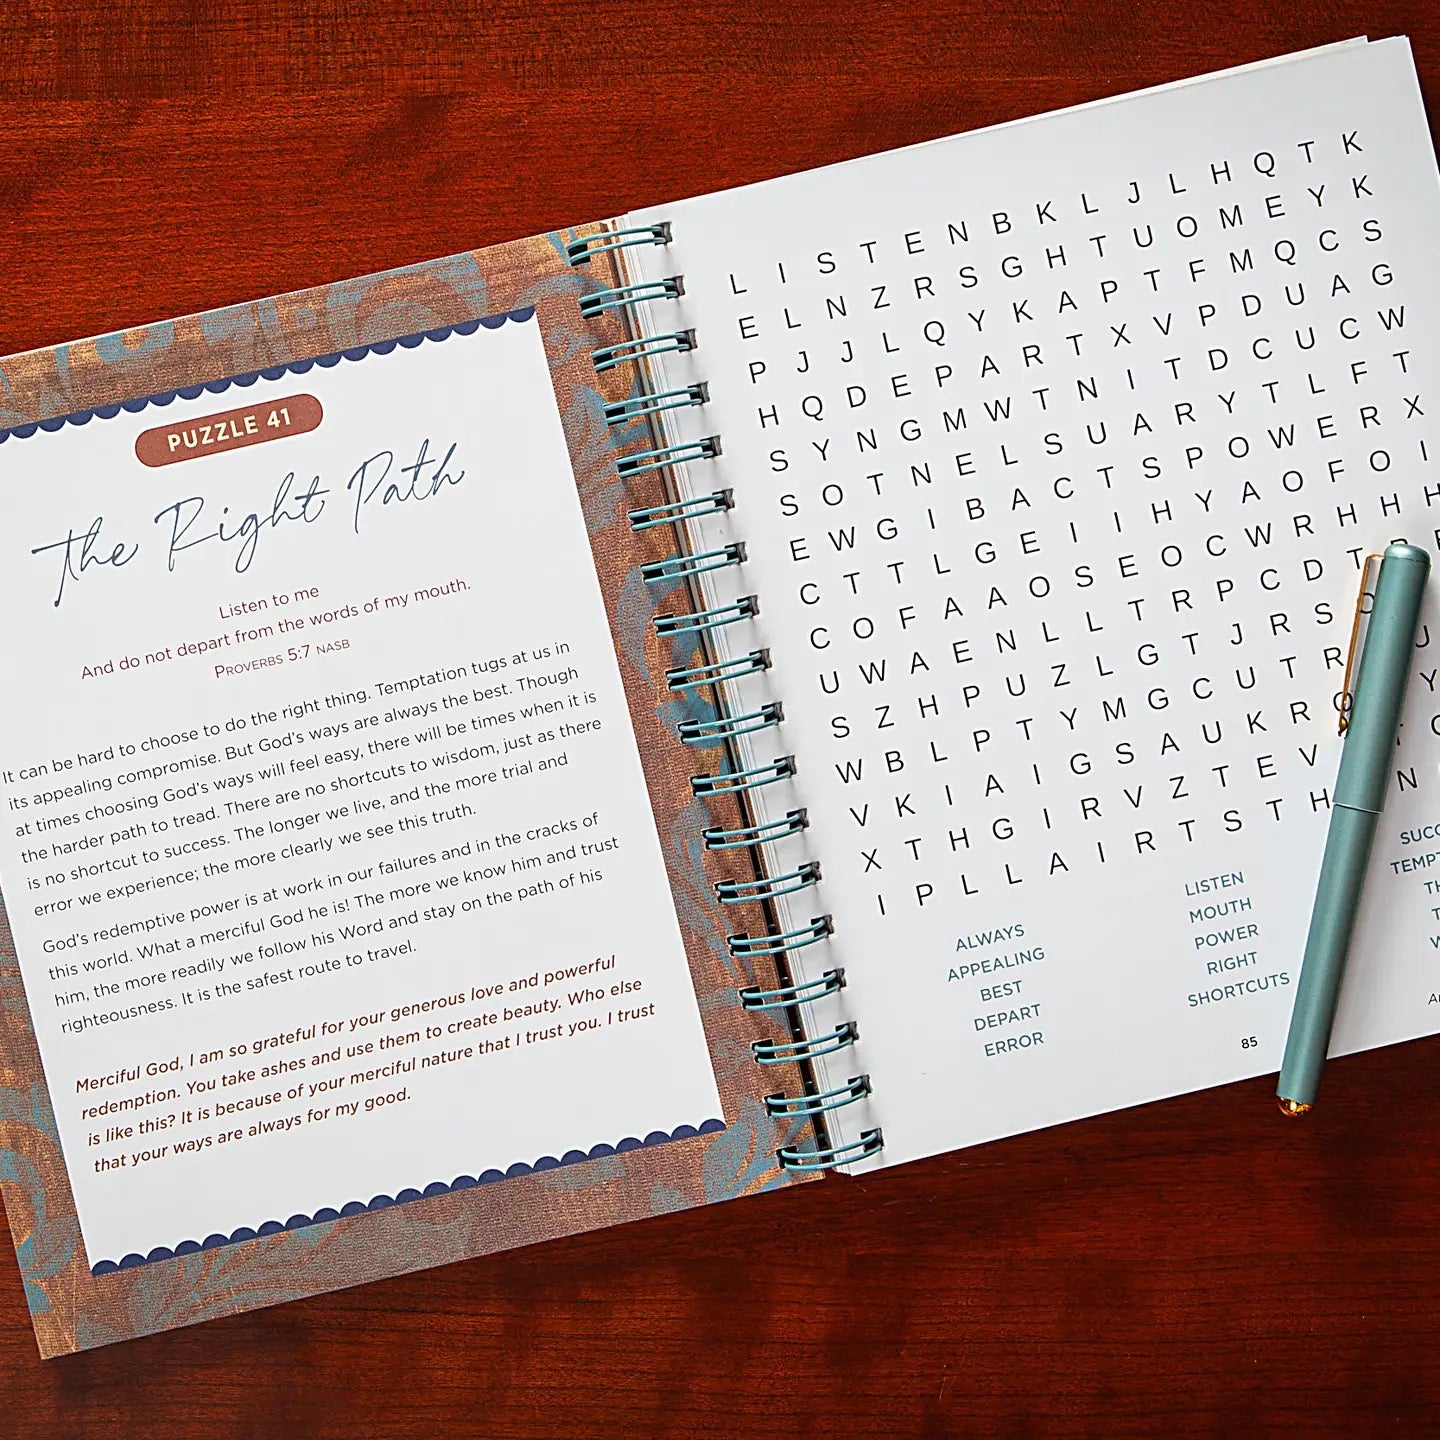 PUZZLE 41
the Right Path
Listen to me
And do not depart from the words of my mouth.
PROVERBS 5:7 NASB
It can be hard to choose to do the right thing. Temptation tugs at us in
its appealing compromise. But God's ways are always the best. Though
at times choosing God's ways will feel easy, there will be times when it is
the harder path to tread. There are no shortcuts to wisdom, just as there
is no shortcut to success. The longer we live, and the more trial and
error we experience; the more clearly we see this truth.
God's redemptive power is at work in our failures and in the cracks of
this world. What a merciful God he is! The more we know him and trust
him, the more readily we follow his Word and stay on the path of his
righteousness. It is the safest route to travel.
Merciful God, I am so grateful for your generous love and powerful
redemption. You take ashes and use them to create beauty. Who else
is like this? It is because of your merciful nature that I trust you. I trust
that your ways are always for my good.
L I S T E N B K L J L H Q T K
E L N Z R S G H T U O M E Y K
P J J L Q Y K A P T F M Q C S
H Q D E P A R T X V P D U A G
S Y N G M W T N I T D C U C W
S O T N E L S U A R Y T L F T
E W G I B A C T S P O W E R X
C T T L G E I I H Y A O F O I
C O F A A O S E O C W R H H H
U W A E N L L T R P C D T
S Z H P U Z L G T J R S
W B L P T Y M G C U T R
V K I A I G S A U K R
X T H G I R V Z T E V
I P L L A I R T S T H N
ALWAYS
APPEALING
BEST
DEPART
ERROR
LISTEN
MOUTH
POWER
RIGHT
SHORTCUTS
85